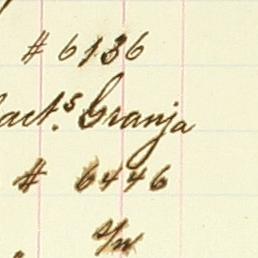 # 6136
act.s Granja
# 6446